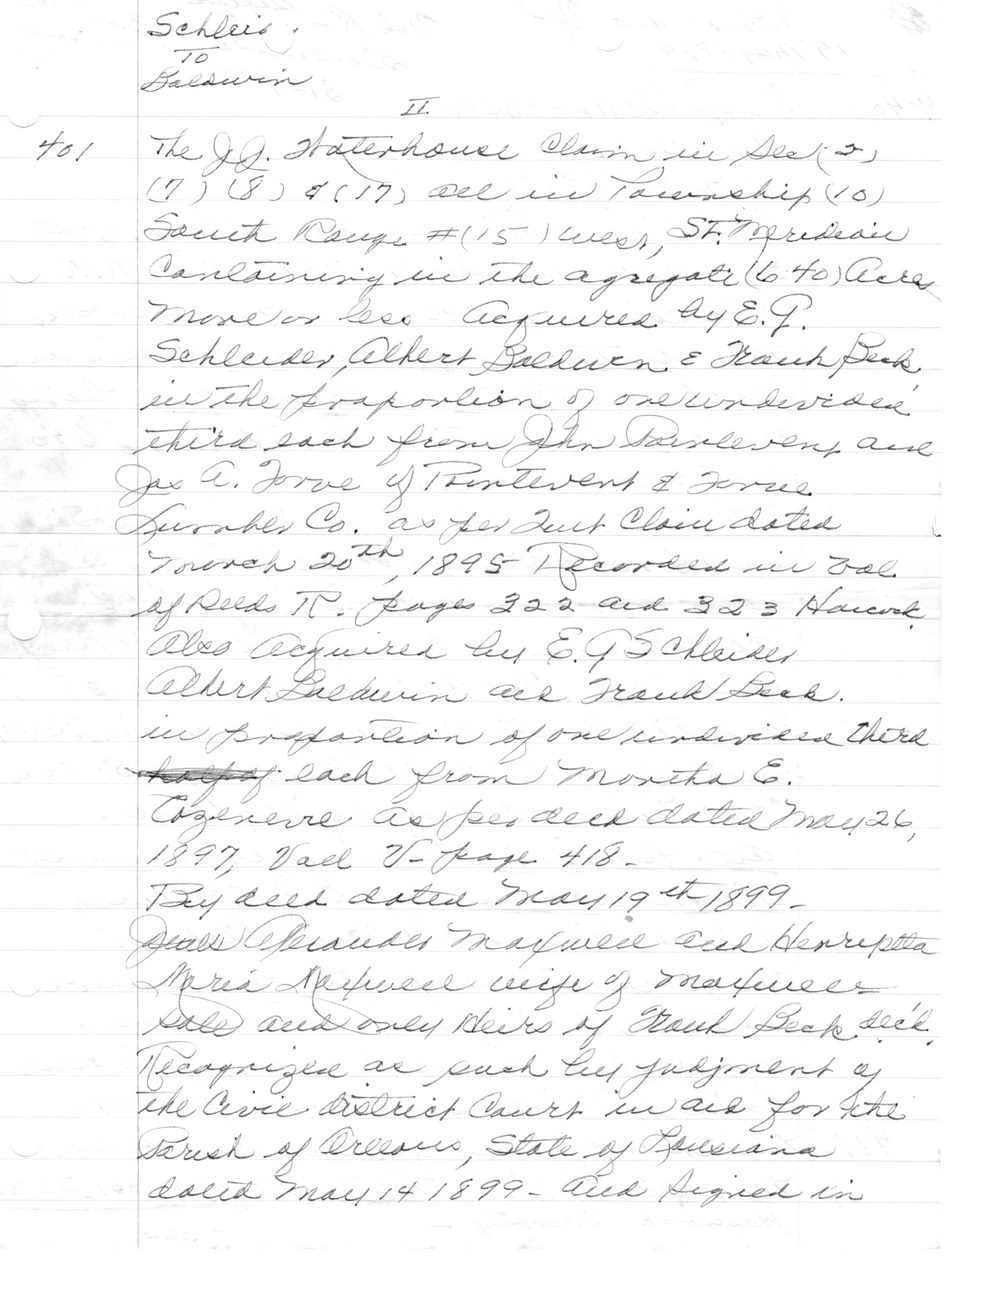 Schleis.
To
Baldwin
II
401 The J.J. Waterhouse Claim in Sec (2)
(7) (8) & (17) all in Township (10)
South Range #(15) West, ST. Meridian
Containing in the agregate (640) Acres
More or less Acquired by E.G.
Schleider, Albert Baldwin & Frank Beck
in the proportion of one undivided
third each from John Poitevent and
Jas A. Favre of Pointevent & Favre
Lumber Co. as per Quit Claim dated
March 20th, 1895 Recorded in Vol
of Deeds R. pages 322 and 323 Hancock
Also Acquired by E.G Schleider
Albert Baldwin and Frank Beck.
in proportion of one undivided third
half of each from Martha E.
Cazeneve as per deed dated May 26,
1897, Vol V- page 418-
By deed dated May 19th 1899-
Alexander Maxwell and Henrietta
Maria Maxwell wife of Maxwell
sole and only Heirs of Frank Beck dec'd.
Recognized as such by judgment of
the Civil District Court in and for the
Parish of Orleans, State of Louisiana
dated May 14 1899- and Signed in